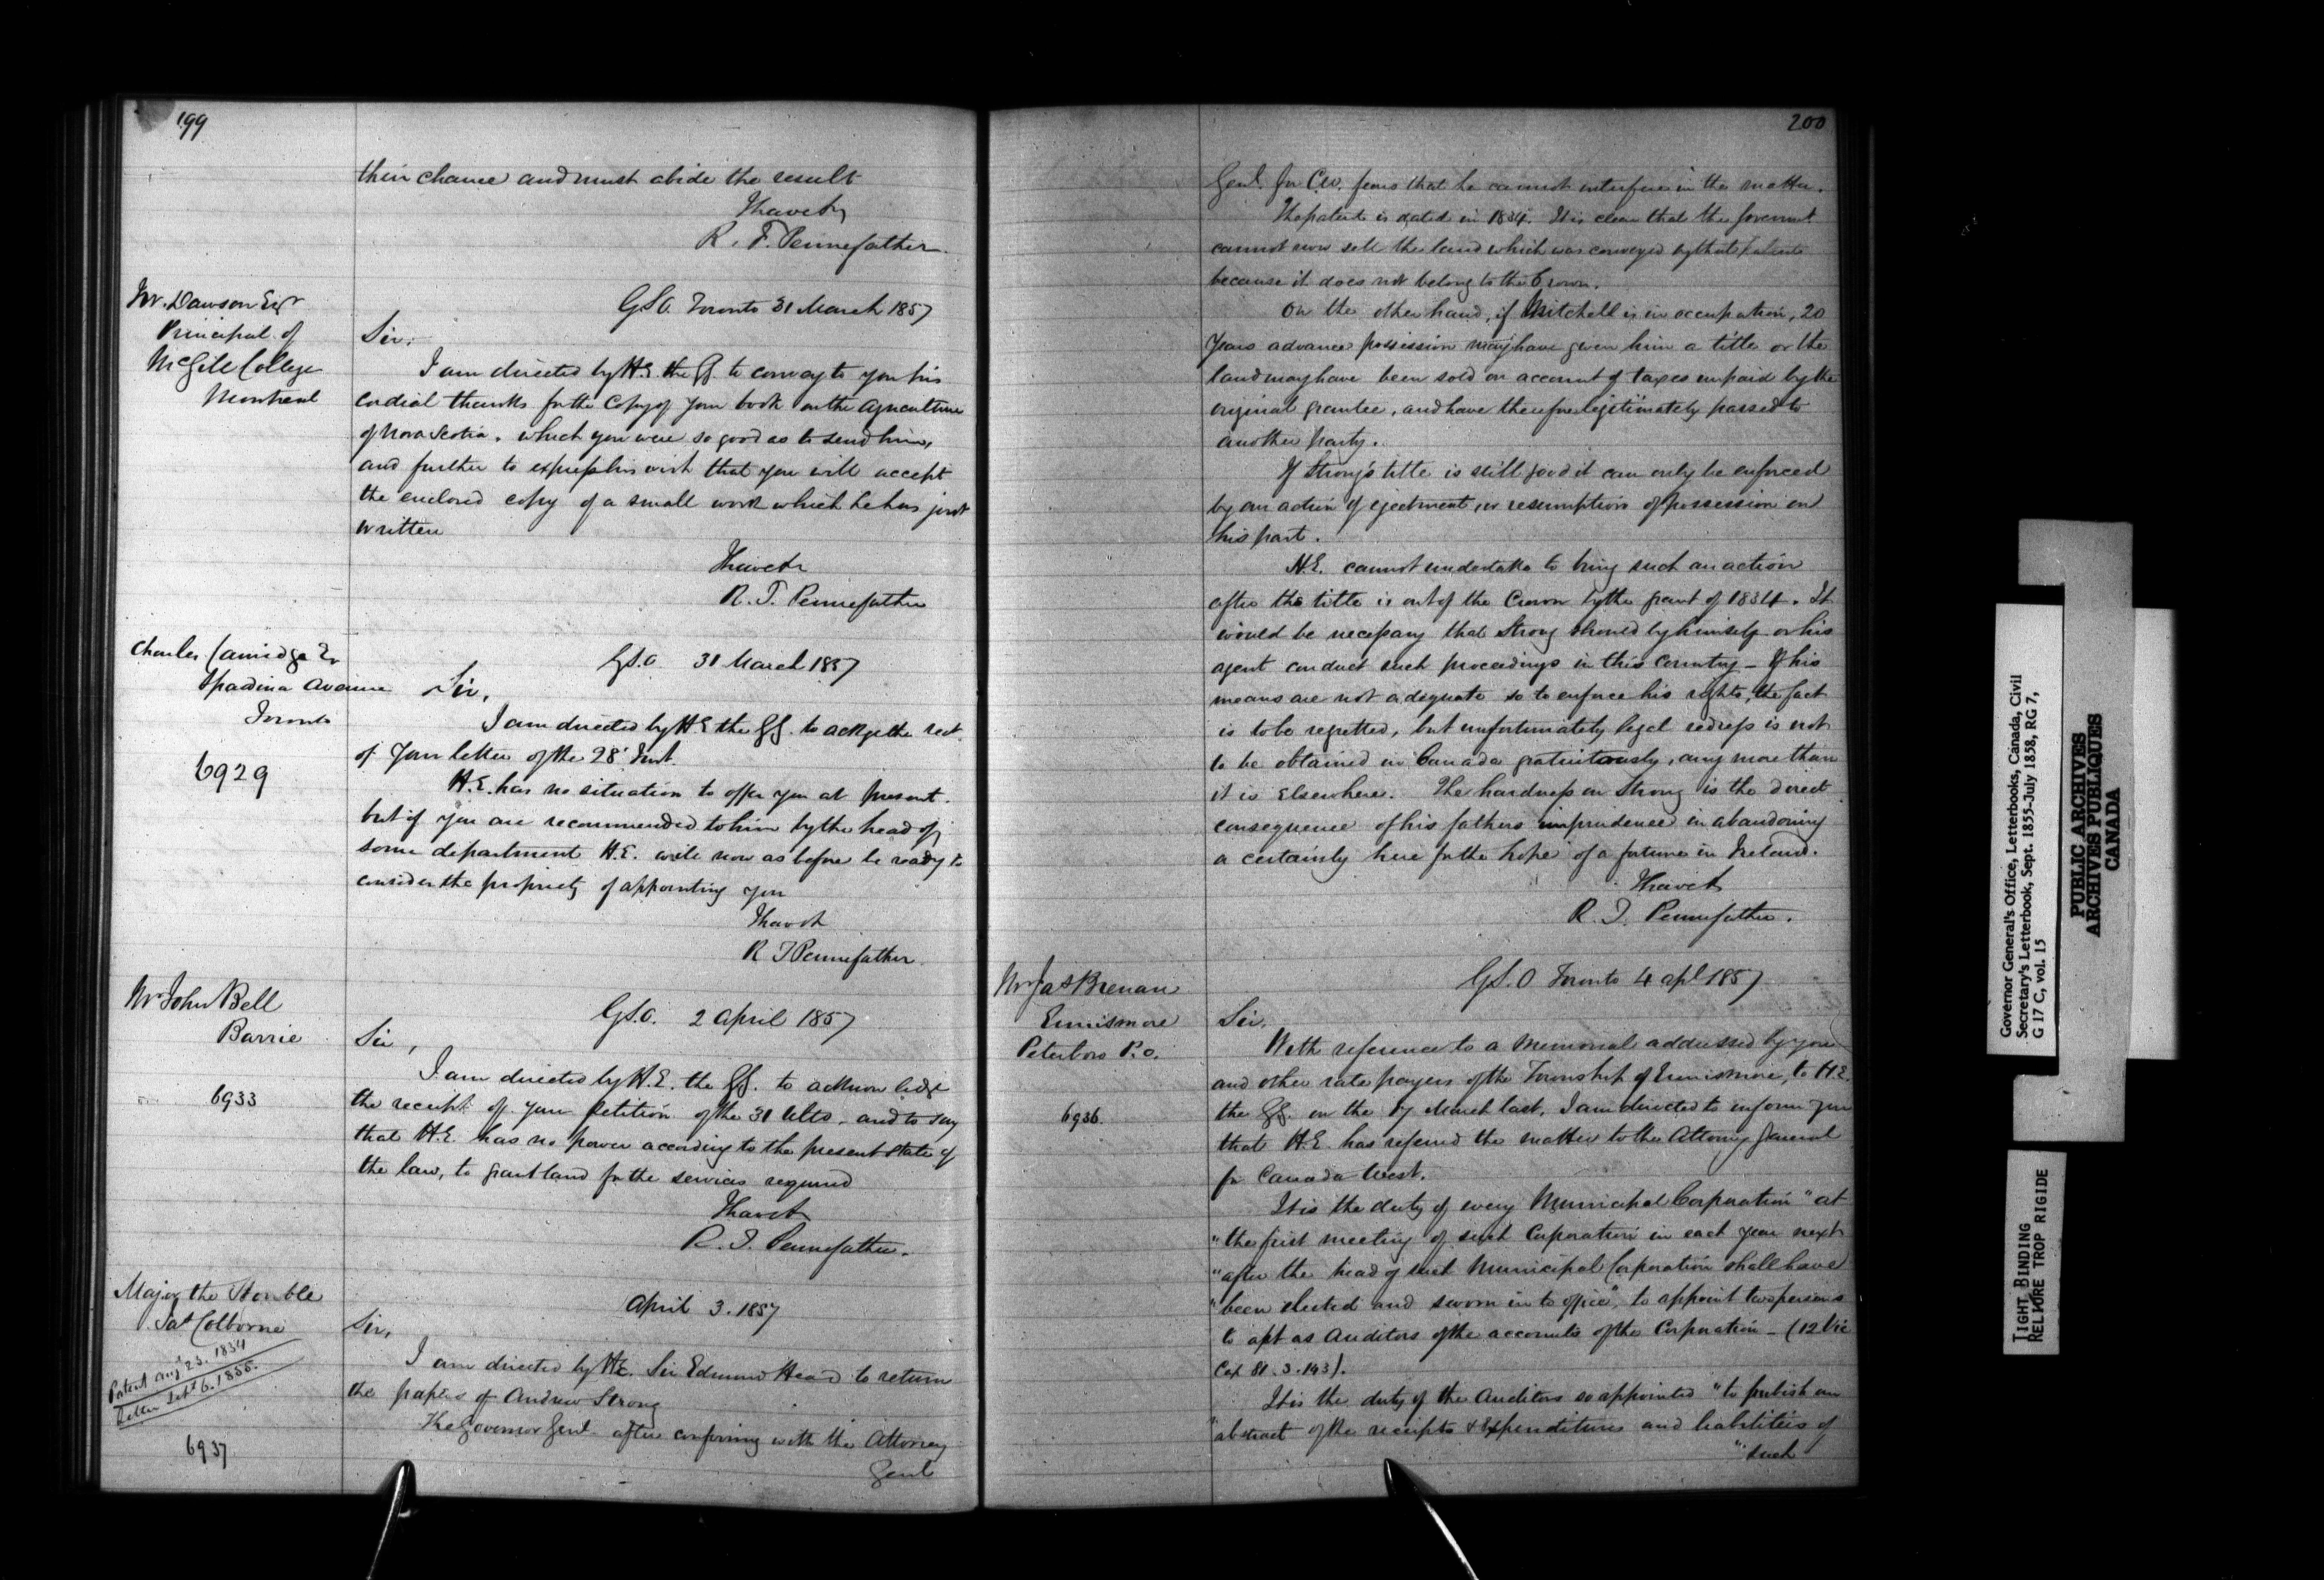 199
their chance and must abide the result
I have &c
R. T. Pennefather
W. Dawson Esqr
Principal of
McGill College
Montreal
G.S.O. Toronto 31 March 1857
Sir,
I am directed by H.E. the GG. to convey to you his
cordial thanks for the Copy of your book on the Agriculture
of Nova Scotia, which you were so good as to send him,
and further to express his wish that you will accept
the enclosed copy of a small work which he has just
written
I have &c
R. T. Pennefather
Charles Camidge Er
Spadina Avenue
Toronto
6929
G.S.O. 31 March 1857
Sir,
I am directed by H.E the GG. to ackge the rect.
of your letter of the 28' Inst.
H.E. has no situation to offer you at present.
but if you are recommended to him by the head of
some department H.E. will now as before be ready to
consider the propriety of appointing you
I have &c
R T Pennefather.
Mr John Bell
Barrie
6933
G.S.O. 2 April 1857
Sir,
I am directed by H.E. the GG. to acknowledge
the receipt of your petition of the 31 Ulto. and to say
that H.E. has no power according to the present state of
the law, to grant land for the services required
I have &c
R. T. Pennefather.
Major the Honble
Jas Colborne
Patent Augt 23. 1834
Letter Sept 6. 1855.
6937
April 3. 1857
Sir,
I am directed by H.E. Sir Edmund Head to return
the papers of Andrew Strong
The Governor Genl. after conferring with the Attorney
Genl
200
Genl. for C.W. fears that he cannot interfere in the matter.
The patent is dated in 1834. It is clear that the Governmt
cannot now sell the land which was conveyed by that patent
because it does not belong to the Crown.
On the other hand, if Mitchell is in occupation, 20
years advance possession may have given him a title or the
land may have been sold on account of taxes unpaid by the
original grantee, and have therefore legitimately passed to
another party.
If Strong's title is still good it can only be enforced
by an action of ejectment, or resumption of possession on
his part.
H.E. cannot undertake to bring such an action
after the title is out of the Crown by the grant of 1834. It
would be necessary that Strong should by himself or his
agent conduct such proceedings in this Country – If his
means are not adequate so to enforce his rights, the fact
is to be regretted, but unfortunately legal redress is not
to be obtained in Canada gratuitously, any more than
it is Elsewhere. The hardness on Strong is the direct
consequence of his fathers imprudence in abandoning
a certainty here for the hope of a fortune in Ireland.
I have &c
R. T. Pennefather.
Mr Jas Brenan
Ennismore
Peterboro P.O.
6936
G.S.O Toronto 4 apl 1857
Sir,
With reference to a Memorial addressed by you
and other rate payers of the Township of Ennismore, to H.E.
the GG. on the 17 March last, I am directed to inform you
that H.E. has referred the matter to the Attorney General
for Canada West.
It is the duty of every Municipal Corporation "at
"the first meeting of such Corporation in each year next
"after the head of such Municipal Corporation shall have
"been elected and sworn in to office", to appoint two persons
to act as Auditors of the accounts of the Corporation – (12 Vic
Cap 81. S. 143).
It is the duty of the Auditors so appointed "to publish an
"abstract of the receipts & Expenditures and liabilities of
"such
Governor General's Office, Letterbooks, Canada, Civil
Secretary's Letterbook, Sept. 1855-July 1858, RG 7,
G 17 C, vol. 15
PUBLIC ARCHIVES
ARCHIVES PUBLIQUES
CANADA
TIGHT BINDING
RELIURE TROP RIGIDE